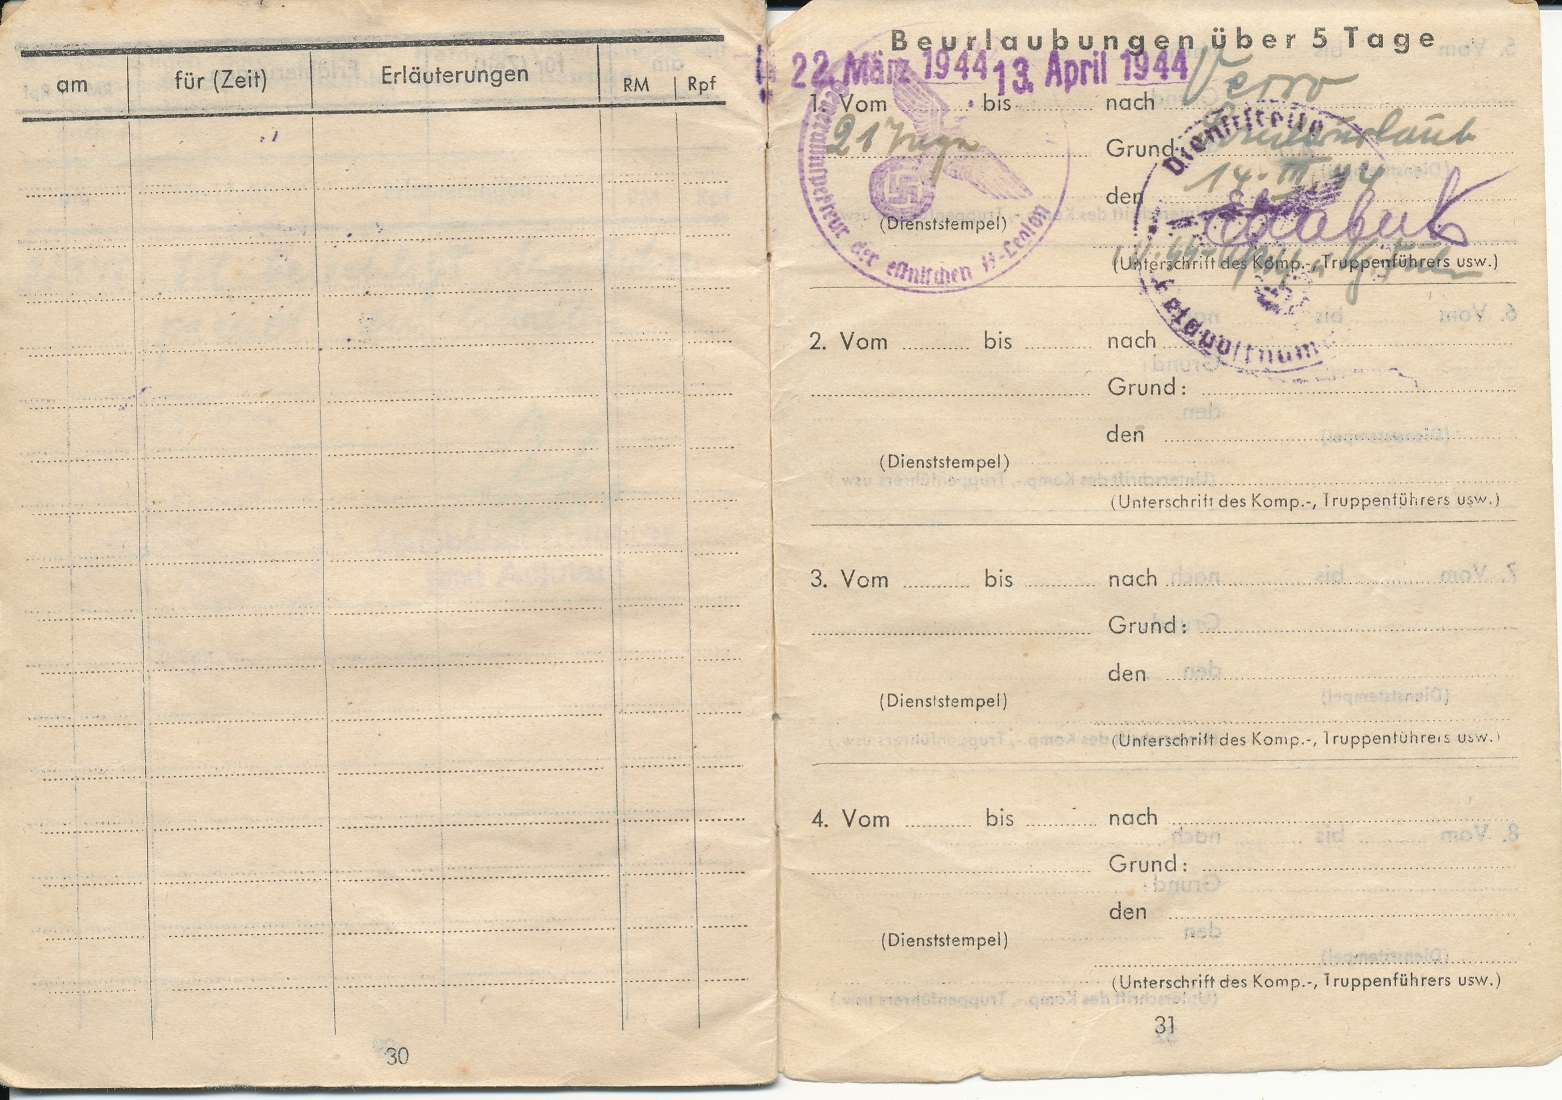 am für (Zeit) Erläuterungen RM Rpf
30
Beurlaubungen über 5 Tage
22. März 1944 13. April 1944
1. Vom bis nach Verro
21 Tage
Grund:
den 14. III. 44
(Dienststempel)
(Unterschrift des Komp.-, Truppenführers usw.)
Generalinspekteur der estnischen SS-Legion
Dienststelle
Feldpostnum
2. Vom bis nach
Grund:
den
(Dienststempel)
(Unterschrift des Komp.-, Truppenführers usw.)
3. Vom bis nach
Grund:
den
(Dienststempel)
(Unterschrift des Komp.-, Truppenführers usw.)
4. Vom bis nach
Grund:
den
(Dienststempel)
(Unterschrift des Komp.-, Truppenführers usw.)
31